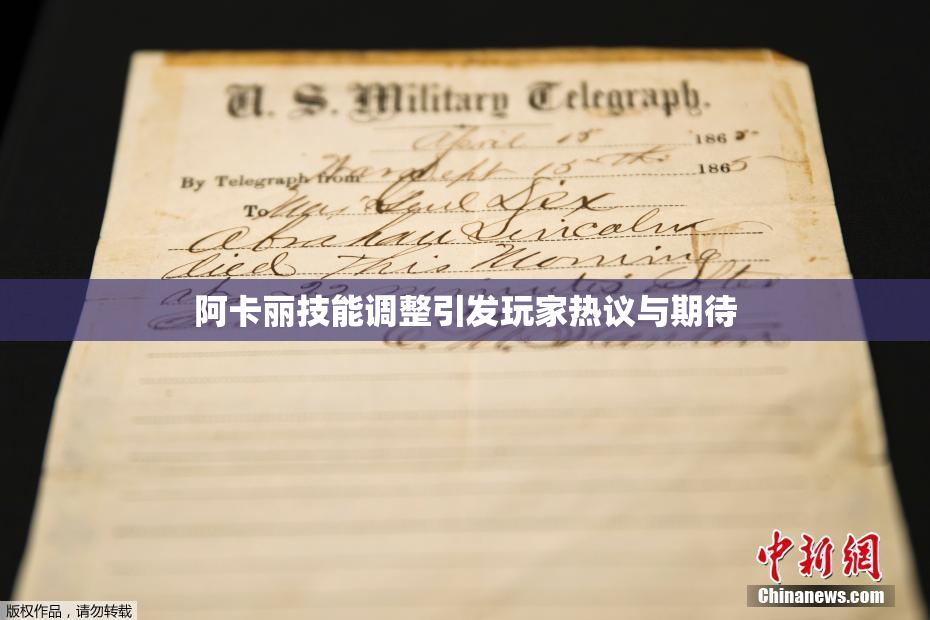 U. S. Military Telegraph.
April 15 1865
By Telegraph from War Dept 15th 1865
To Maj Genl Dix
Abraham Lincoln
died This Morning
at 22 minutes after
阿卡丽技能调整引发玩家热议与期待
中新网
Chinanews.com
版权作品，请勿转载